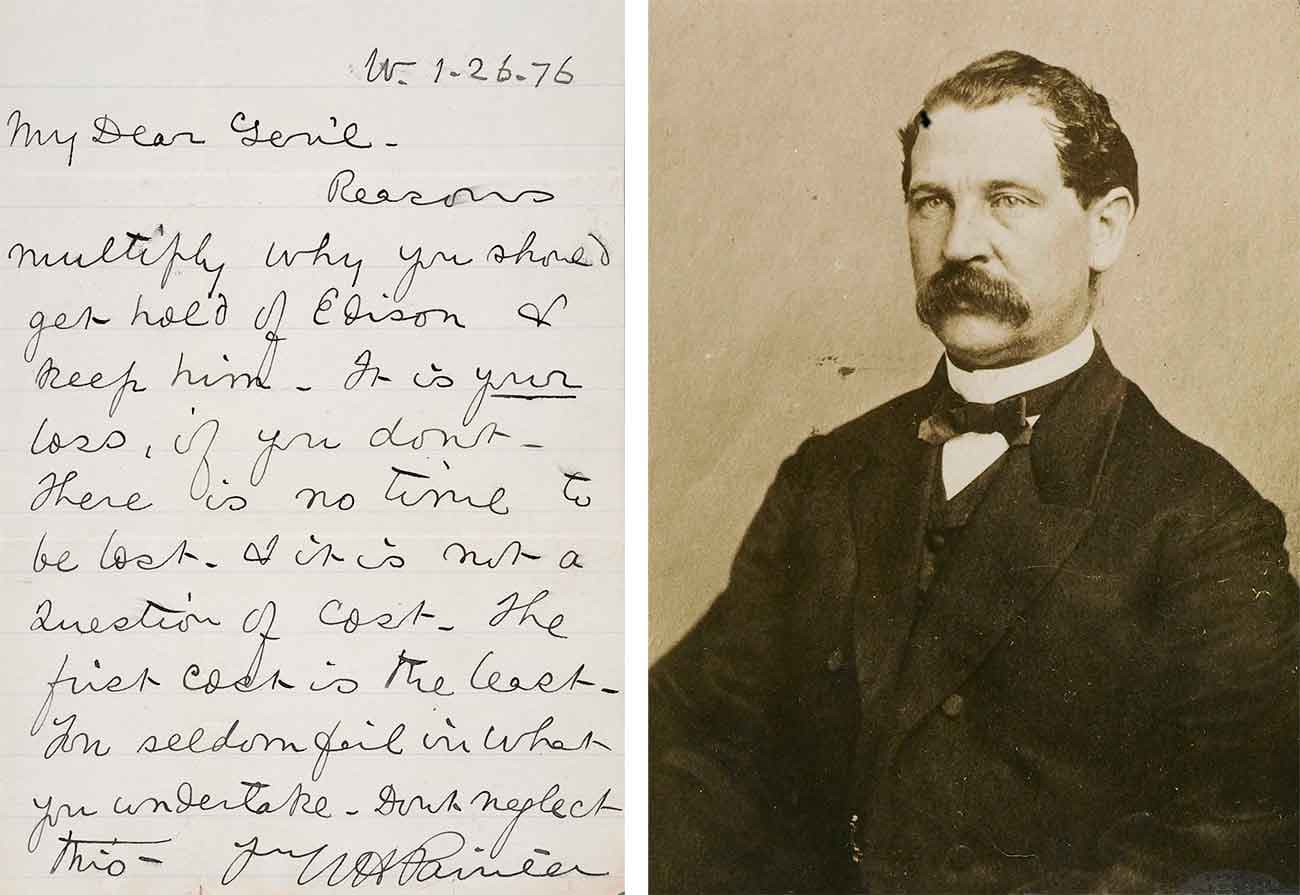 W. 1-26-76
My Dear Gen'l -
Reasons
multiply why you should
get hold of Edison &
keep him - It is your
loss, if you dont -
There is no time to
be lost. & it is not a
question of cost - The
first cost is the least -
You seldom fail in what
you undertake - Dont neglect
this - Yrs U H Painter